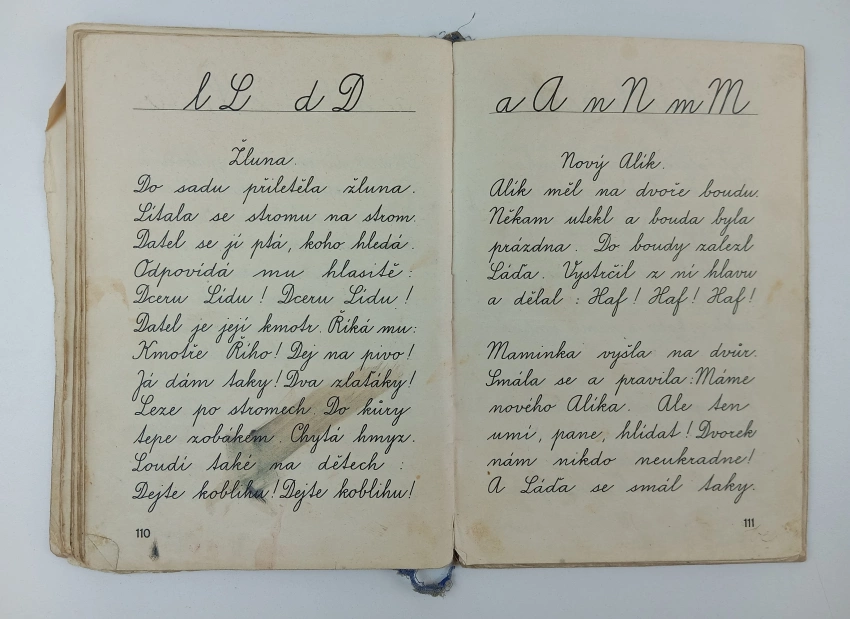 l L d D
Žluna.
Do sadu přiletěla žluna.
Lítala se stromu na strom.
Datel se jí ptá, koho hledá.
Odpovídá mu hlasitě:
Dceru Lídu! Dceru Lídu!
Datel je její kmotr. Říká mu:
Kmotře Řího! Dej na pivo!
Já dám taky! Dva zlaťáky!
Leze po stromech. Do kůry
tepe zobákem. Chytá hmyz.
Loudí také na dětech:
Dejte koblihu! Dejte koblihu!
110
a A n N m M
Nový Alík.
Alík měl na dvoře boudu.
Někam utekl a bouda byla
prázdna. Do boudy zalezl
Láďa. Vystrčil z ní hlavu
a dělal: Haf! Haf! Haf!
Maminka vyšla na dvůr.
Smála se a pravila: Máme
nového Alíka. Ale ten
umí, pane, hlídat! Dvorek
nám nikdo neukradne!
A Láďa se smál taky.
111